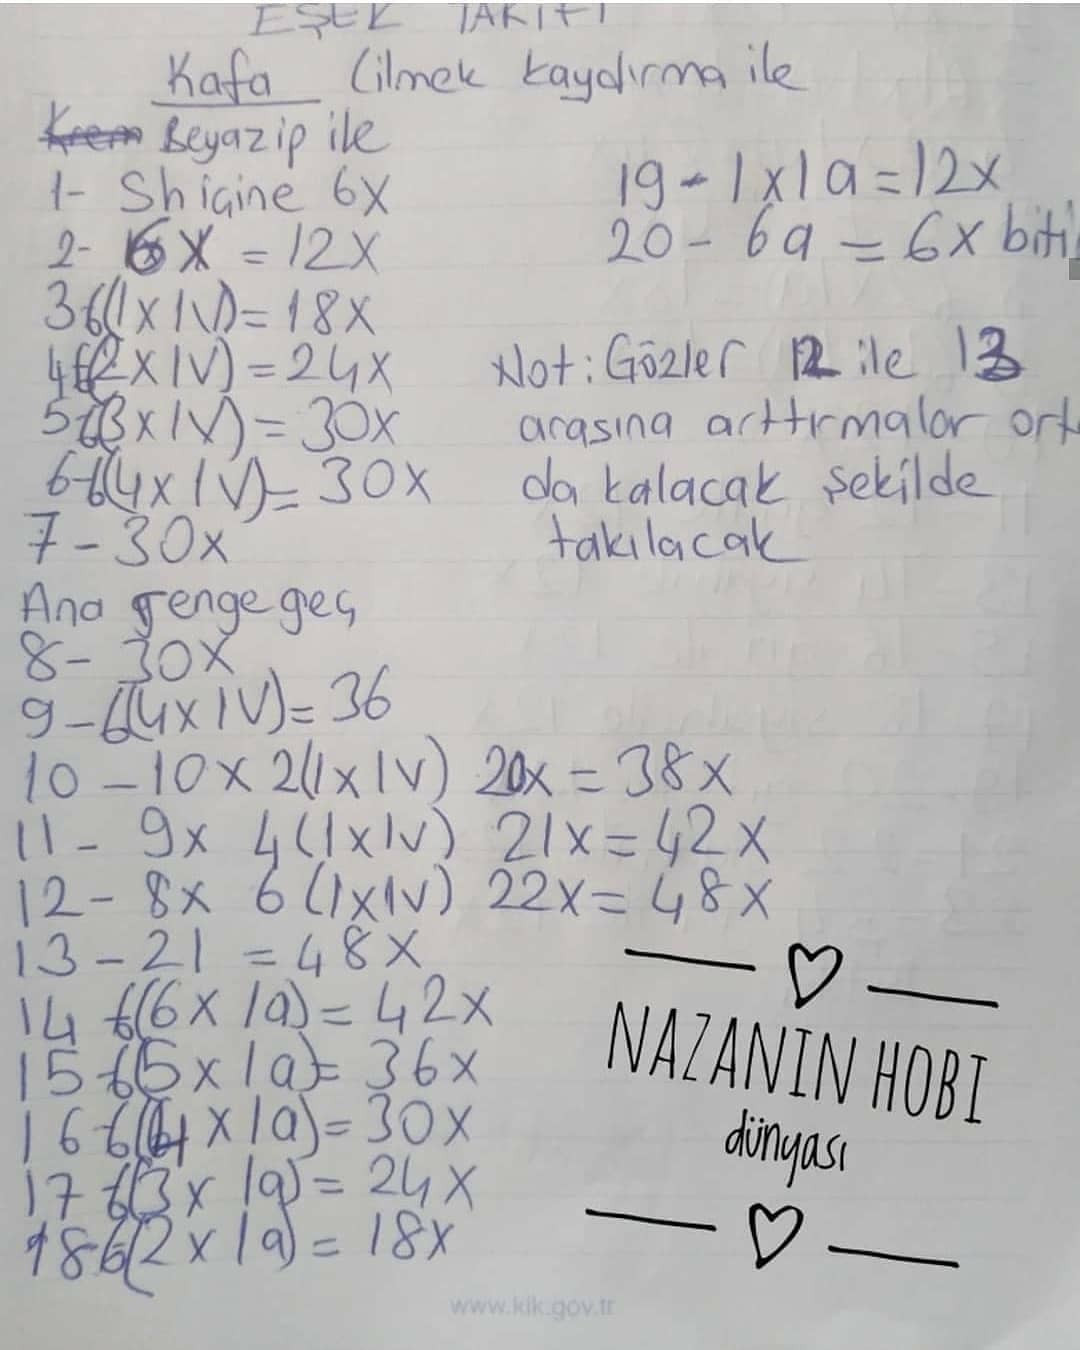 EŞEK TAKIFI
Kafa Cilmek kaydırma ile
Krem Beyazip ile
1- Shiçine 6X
2- 6X = 12X
3 6(1x1V) = 18X
4 6(2X1V) = 24X
5 6(3x1V) = 30X
6-6(4x1V) = 30X
7-30x
Ana renge geç
8- 30X
9-6(4x1V)= 36
10-10x 2(1x1V) 20x = 38x
11- 9x 4(1x1v) 21x = 42x
12- 8x 6(1x1v) 22x = 48x
13-21 = 48X
14 6(6x1a) = 42x
15 6(5x1a) = 36x
16 6(4x1a) = 30x
17 6(3x1a) = 24x
18 6(2x1a) = 18x
19-1x1a=12x
20-6a=6x biti
Not: Gözler 12 ile 13
arasına arttırmalar ort
da kalacak şekilde
takılacak
NAZANIN HOBI
dünyası
www.kik.gov.tr